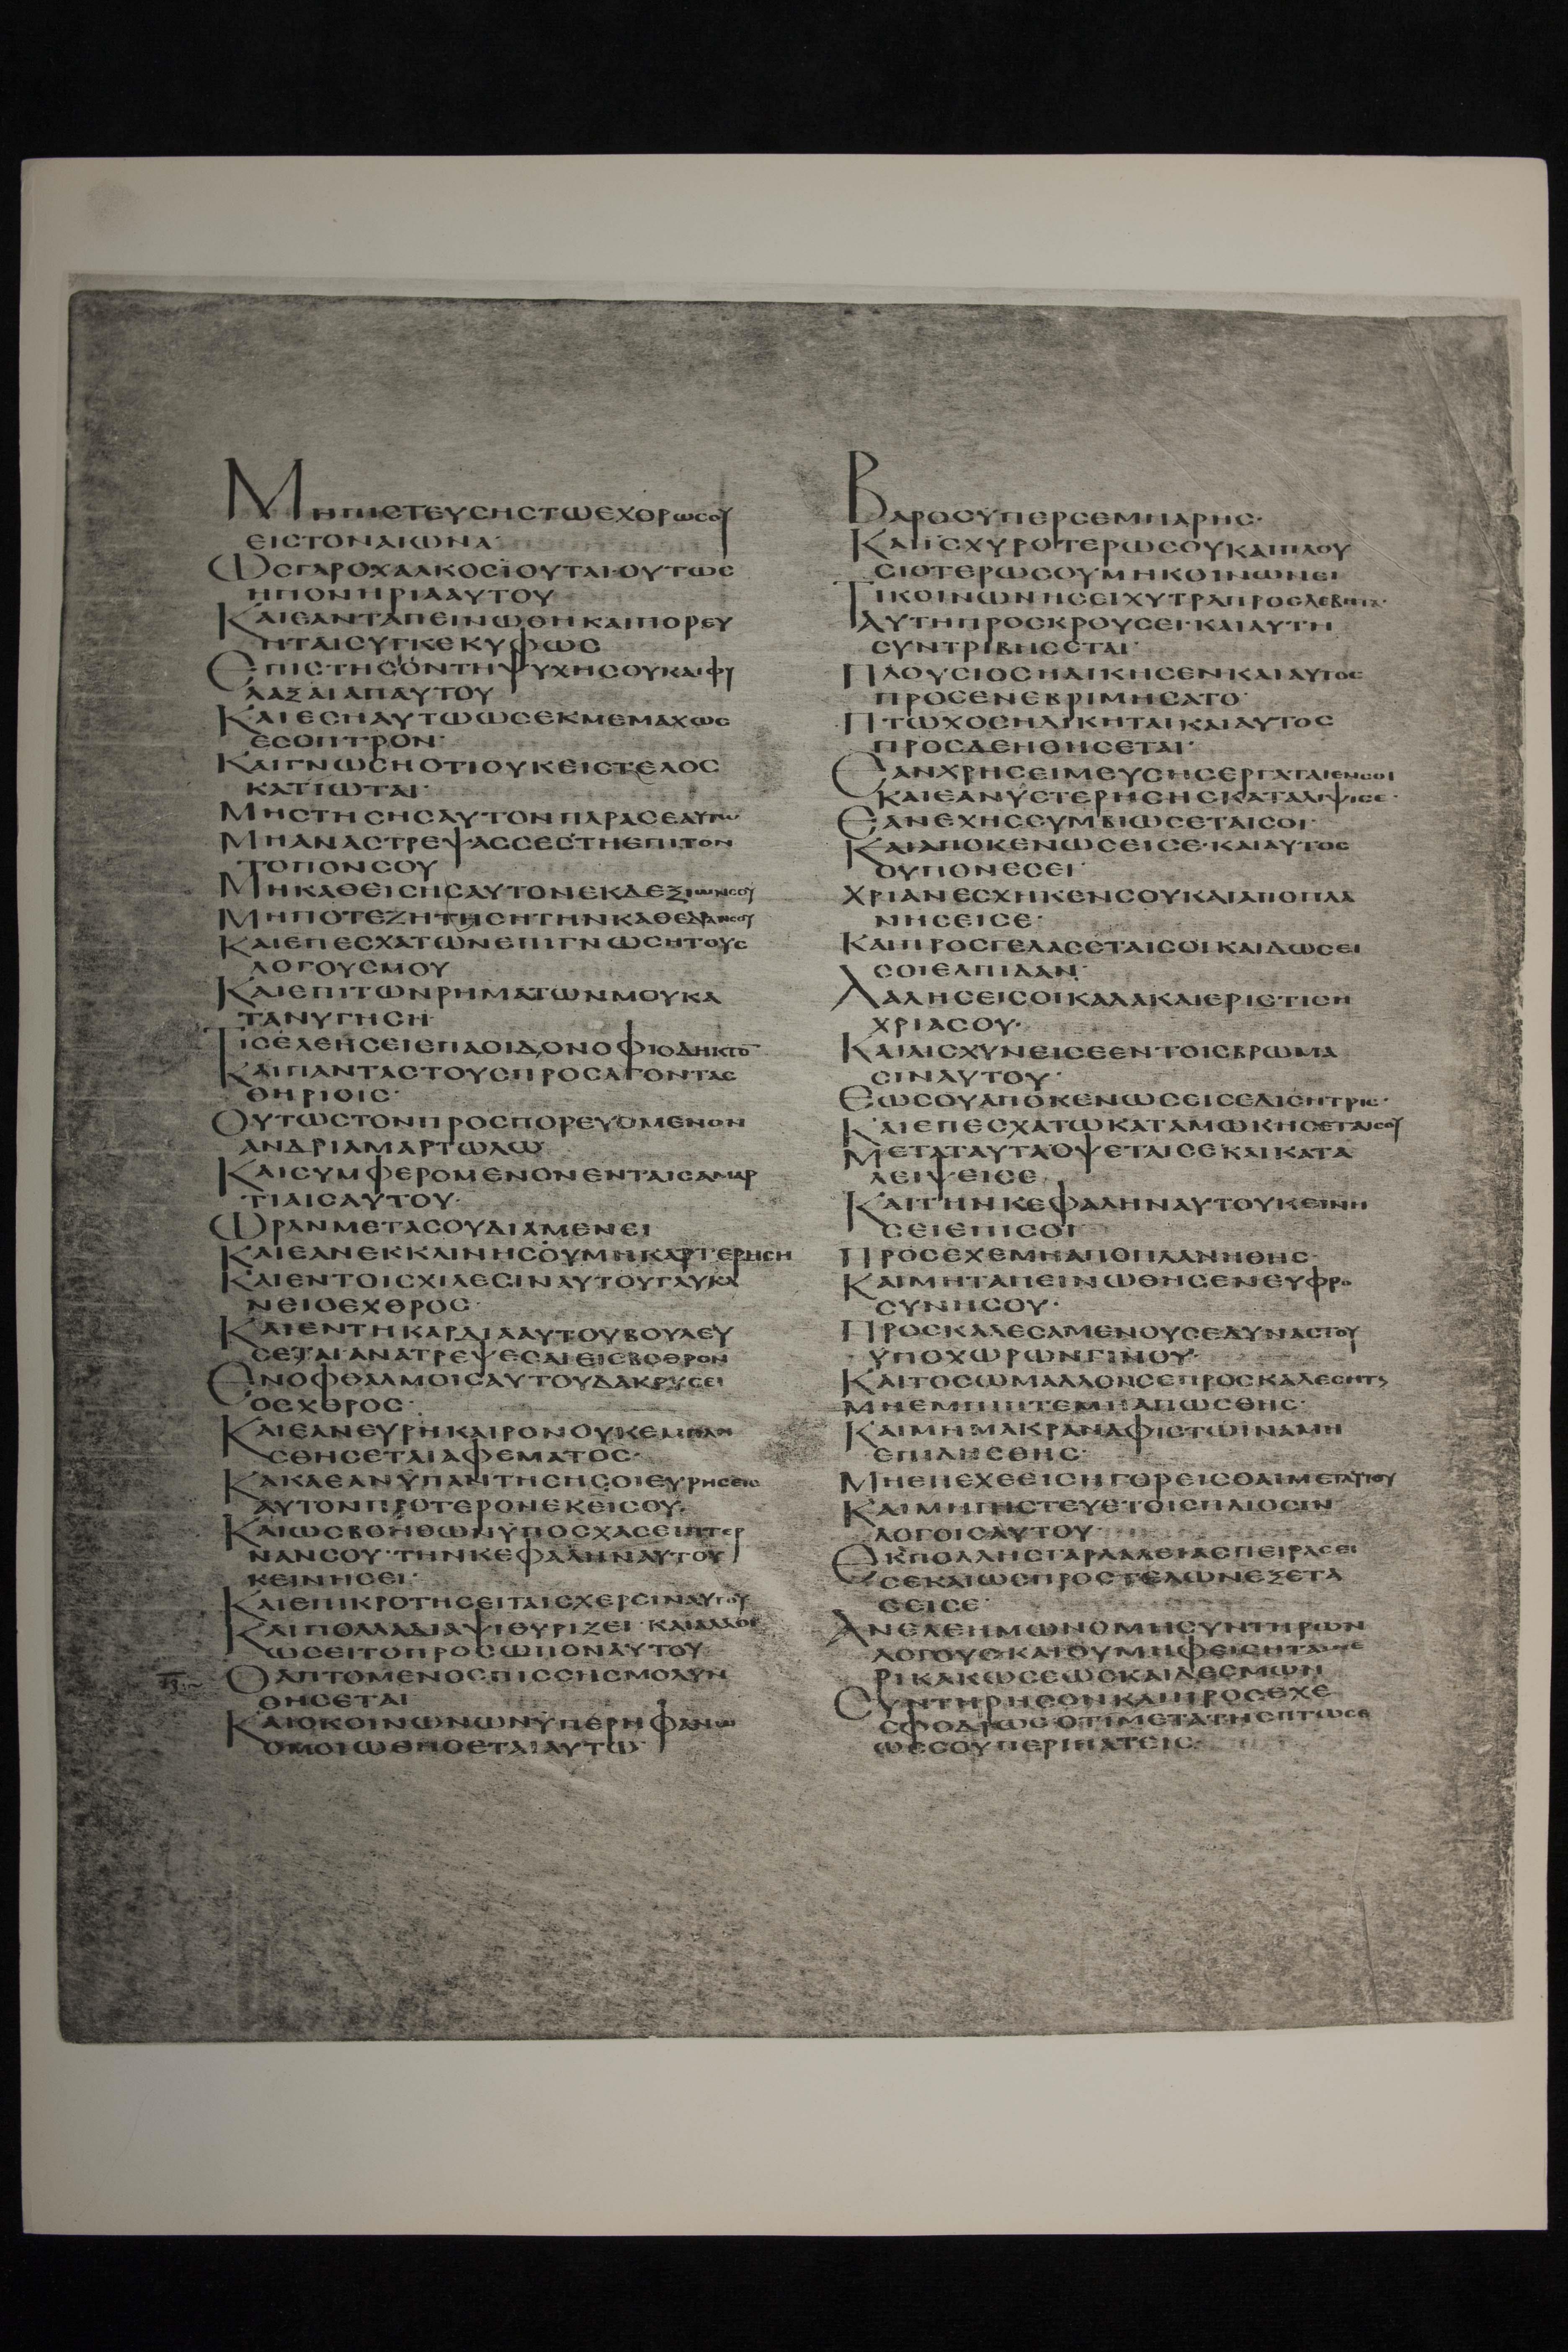 ΜΗΠΙCΤΕΥCΗCΤΩΕΧΘΡΩCΟΥ
ΕΙCΤΟΝΑΙΩΝΑ·
ΩCΓΑΡΟΧΑΛΚΟCΪΟΥΤΑΙ·ΟΥΤΩC
ΗΠΟΝΗΡΙΑΑΥΤΟΥ
ΚΑΙΕΑΝΤΑΠΕΙΝΩΘΗΚΑΙΠΟΡΕΥ
ΗΤΑΙCΥΓΚΕΚΥΦΩC
ΕΠΙCΤΗCΟΝΤΗΨΥΧΗCΟΥΚΑΙΦΥ
ΛΑΞΑΙΑΠΑΥΤΟΥ
ΚΑΙΕCΗΑΥΤΩΩCΕΚΜΕΜΑΧΩC
ΕCΟΠΤΡΟΝ·
ΚΑΙΓΝΩCΗΟΤΙΟΥΚΕΙCΤΕΛΟC
ΚΑΤΙΩΤΑΙ·
ΜΗCΤΗCΗCΑΥΤΟΝΠΑΡΑCΕΑΥΤΩ
ΜΗΑΝΑCΤΡΕΨΑCCΕCΤΗΕΠΙΤΟΝ
ΤΟΠΟΝCΟΥ
ΜΗΚΑΘΕΙCΗCΑΥΤΟΝΕΚΔΕΞΙΩΝCΟΥ
ΜΗΠΟΤΕΖΗΤΗCΗΤΗΝΚΑΘΕΔΡΑΝCΟΥ
ΚΑΙΕΠΕCΧΑΤΩΝΕΠΙΓΝΩCΗΤΟΥC
ΛΟΓΟΥCΜΟΥ
ΚΑΙΕΠΙΤΩΝΡΗΜΑΤΩΝΜΟΥΚΑ
ΤΑΝΥΓΗCΗ·
ΤΙCΕΛΕΗCΕΙΕΠΑΟΙΔΟΝΟΦΙΟΔΗΚΤΟ̅
ΚΑΙΠΑΝΤΑCΤΟΥCΠΡΟCΑΓΟΝΤΑC
ΘΗΡΙΟΙC·
ΟΥΤΩCΤΟΝΠΡΟCΠΟΡΕΥΟΜΕΝΟΝ
ΑΝΔΡΙΑΜΑΡΤΩΛΩ
ΚΑΙCΥΜΦΕΡΟΜΕΝΟΝΕΝΤΑΙCΑΜΑΡ
ΤΙΑΙCΑΥΤΟΥ·
ΩΡΑΝΜΕΤΑCΟΥΔΙΑΜΕΝΕΙ
ΚΑΙΕΑΝΕΚΚΛΙΝΗCΟΥΜΗΚΑΡΤΕΡΗCΗ
ΚΑΙΕΝΤΟΙCΧΙΛΕCΙΝΑΥΤΟΥΓΛΥΚΑ
ΝΕΙΟΕΧΘΡΟC·
ΚΑΙΕΝΤΗΚΑΡΔΙΑΑΥΤΟΥΒΟΥΛΕΥ
CΕΤΑΙΑΝΑΤΡΕΨΕCΑΙΕΙCΒΟΘΡΟΝ
ΕΝΟΦΘΑΛΜΟΙCΑΥΤΟΥΔΑΚΡΥCΕΙ
ΟΕΧΘΡΟC·
ΚΑΙΕΑΝΕΥΡΗΚΑΙΡΟΝΟΥΚΕΜΠΛΗ
CΘΗCΕΤΑΙΑΦΕΜΑΤΟC·
ΚΑΚΑΕΑΝΫΠΑΝΤΗCΗCΟΙΕΥΡΗCΕΙC
ΑΥΤΟΝΠΡΟΤΕΡΟΝΕΚΕΙCΟΥ
ΚΑΙΩCΒΟΗΘΩΝΫΠΟCΧΑCΕΙΠΤΕΡ
ΝΑΝCΟΥ·ΤΗΝΚΕΦΑΛΗΝΑΥΤΟΥ
ΚΕΙΝΗCΕΙ·
ΚΑΙΕΠΙΚΡΟΤΗCΕΙΤΑΙCΧΕΡCΙΝΑΥΤΟΥ
ΚΑΙΠΟΛΛΑΔΙΑΨΙΘΥΡΙΖΕΙ·ΚΑΙΑΛΛΟΙ
ΩCΕΙΤΟΠΡΟCΩΠΟΝΑΥΤΟΥ
ΟΑΠΤΟΜΕΝΟCΠΙCCΗCΜΟΛΥΝ
ΘΗCΕΤΑΙ
ΚΑΙΟΚΟΙΝΩΝΩΝΫΠΕΡΗΦΑΝΩ
ΟΜΟΙΩΘΗCΕΤΑΙΑΥΤΩ
ΒΑΡΟCΫΠΕΡCΕΜΗΑΡΗC·
ΚΑΙΪCΧΥΡΟΤΕΡΩCΟΥΚΑΙΠΛΟΥ
CΙΟΤΕΡΩCΟΥΜΗΚΟΙΝΩΝΕΙ
ΤΙΚΟΙΝΩΝΗCΕΙΧΥΤΡΑΠΡΟCΛΕΒΗΤΑ·
ΑΥΤΗΠΡΟCΚΡΟΥCΕΙ·ΚΑΙΑΥΤΗ
CΥΝΤΡΙΒΗCΕΤΑΙ·
ΠΛΟΥCΙΟCΗΔΙΚΗCΕΝΚΑΙΑΥΤΟC
ΠΡΟCΕΝΕΒΡΙΜΗCΑΤΟ·
ΠΤΩΧΟCΗΔΙΚΗΤΑΙΚΑΙΑΥΤΟC
ΠΡΟCΔΕΗΘΗCΕΤΑΙ·
ΕΑΝΧΡΗCΕΙΜΕΥCΗCΕΡΓΑΤΑΙΕΝCΟΙ
ΚΑΙΕΑΝΫCΤΕΡΗCΗCΚΑΤΑΛΙΨΙCΕ·
ΕΑΝΕΧΗCCΥΜΒΙΩCΕΤΑΙCΟΙ·
ΚΑΙΑΠΟΚΕΝΩCΕΙCΕ·ΚΑΙΑΥΤΟC
ΟΥΠΟΝΕCΕΙ·
ΧΡΙΑΝΕCΧΗΚΕΝCΟΥΚΑΙΑΠΟΠΛΑ
ΝΗCΕΙCΕ·
ΚΑΙΠΡΟCΓΕΛΑCΕΤΑΙCΟΙΚΑΙΔΩCΕΙ
CΟΙΕΛΠΙΔΑΝ·
ΛΑΛΗCΕΙCΟΙΚΑΛΑΚΑΙΕΡΙCΤΙCΗ
ΧΡΙΑCΟΥ·
ΚΑΙΑΙCΧΥΝΕΙCΕΕΝΤΟΙCΒΡΩΜΑ
CΙΝΑΥΤΟΥ·
ΕΩCΟΥΑΠΟΚΕΝΩCΕΙCΕΔΙCΗΤΡΙC·
ΚΑΙΕΠΕCΧΑΤΩΚΑΤΑΜΩΚΗCΕΤΑΙCΟΥ
ΜΕΤΑΤΑΥΤΑΟΨΕΤΑΙCΕΚΑΙΚΑΤΑ
ΛΕΙΨΕΙCΕ
ΚΑΙΤΗΝΚΕΦΑΛΗΝΑΥΤΟΥΚΕΙΝΗ
CΕΙΕΠΙCΟΙ
ΠΡΟCΕΧΕΜΗΑΠΟΠΛΑΝΗΘΗC·
ΚΑΙΜΗΤΑΠΕΙΝΩΘΗCΕΝΕΥΦΡΟ
CΥΝΗCΟΥ·
ΠΡΟCΚΑΛΕCΑΜΕΝΟΥCΕΔΥΝΑCΤΟΥ
ΫΠΟΧΩΡΩΝΓΙΝΟΥ·
ΚΑΙΤΟCΩΜΑΛΛΟΝCΕΠΡΟCΚΑΛΕCΗΤ
ΜΗΕΜΠΙΠΤΕΜΗΑΠΩCΘΗC·
ΚΑΙΜΗΜΑΚΡΑΝΑΦΙCΤΩΙΝΑΜΗ
ΕΠΙΛΗCΘΗC·
ΜΗΕΠΕΧΕΕΙCΗΓΟΡΕΙCΘΑΙΜΕΤΑΥΤΟΥ
ΚΑΙΜΗΠΙCΤΕΥΕΤΟΙCΠΛΙΟCΙΝ
ΛΟΓΟΙCΑΥΤΟΥ·
ΕΚΠΟΛΛΗCΓΑΡΛΑΛΕΙΑCΠΕΙΡΑCΕΙ
CΕΚΑΙΩCΠΡΟCΓΕΛΩΝΕΞΕΤΑ
CΕΙCΕ·
ΑΝΕΛΕΗΜΩΝΟΜΗCΥΝΤΗΡΩΝ
ΛΟΓΟΥCΚΑΙΟΥΜΗΦΕΙCΗΤΑΙΠΕ
ΡΙΚΑΚΩCΕΩCΚΑΙΔΕCΜΩΝ
CΥΝΤΗΡΗCΟΝΚΑΙΠΡΟCΕΧΕ
CΦΟΔΡΩCΟΤΙΜΕΤΑΤΗCΠΤΩCΕ
ΩCCΟΥΠΕΡΙΠΑΤΕΙC·